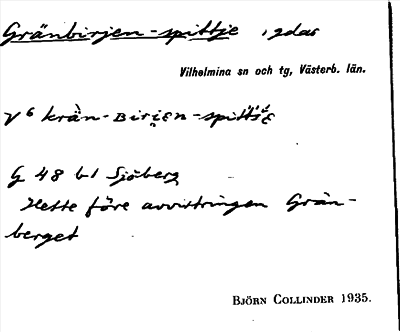 Gränbirjen-spittje, gdas
Vilhelmina sn och tg, Västerb. län.
V6 krän-Birjen-spittsE
G 48 b1 Sjöberg
Hette före avvittringen Grän-
berget
BJÖRN COLLINDER 1935.